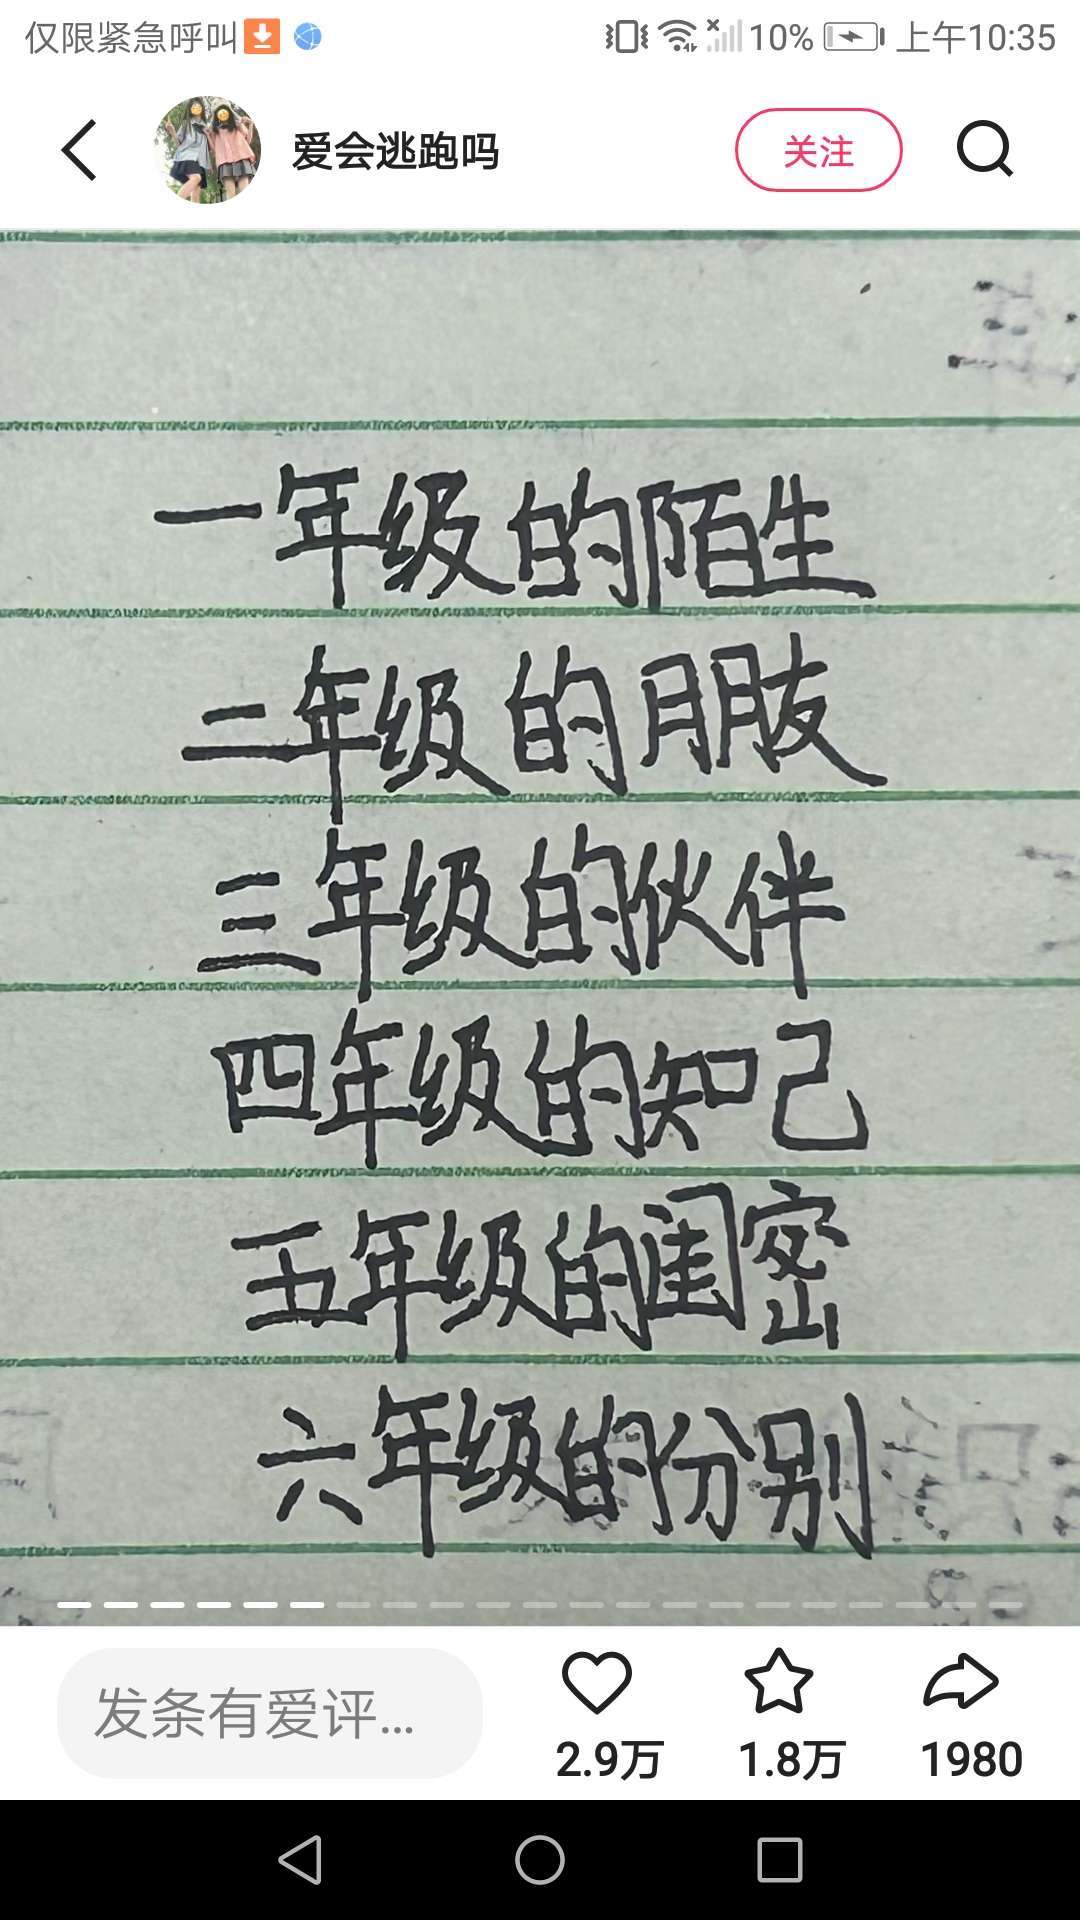 仅限紧急呼叫 10% 上午10:35
爱会逃跑吗 关注
一年级的陌生
二年级的朋友
三年级的伙伴
四年级的知己
五年级的闺密
六年级的分别
发条有爱评... 2.9万 1.8万 1980